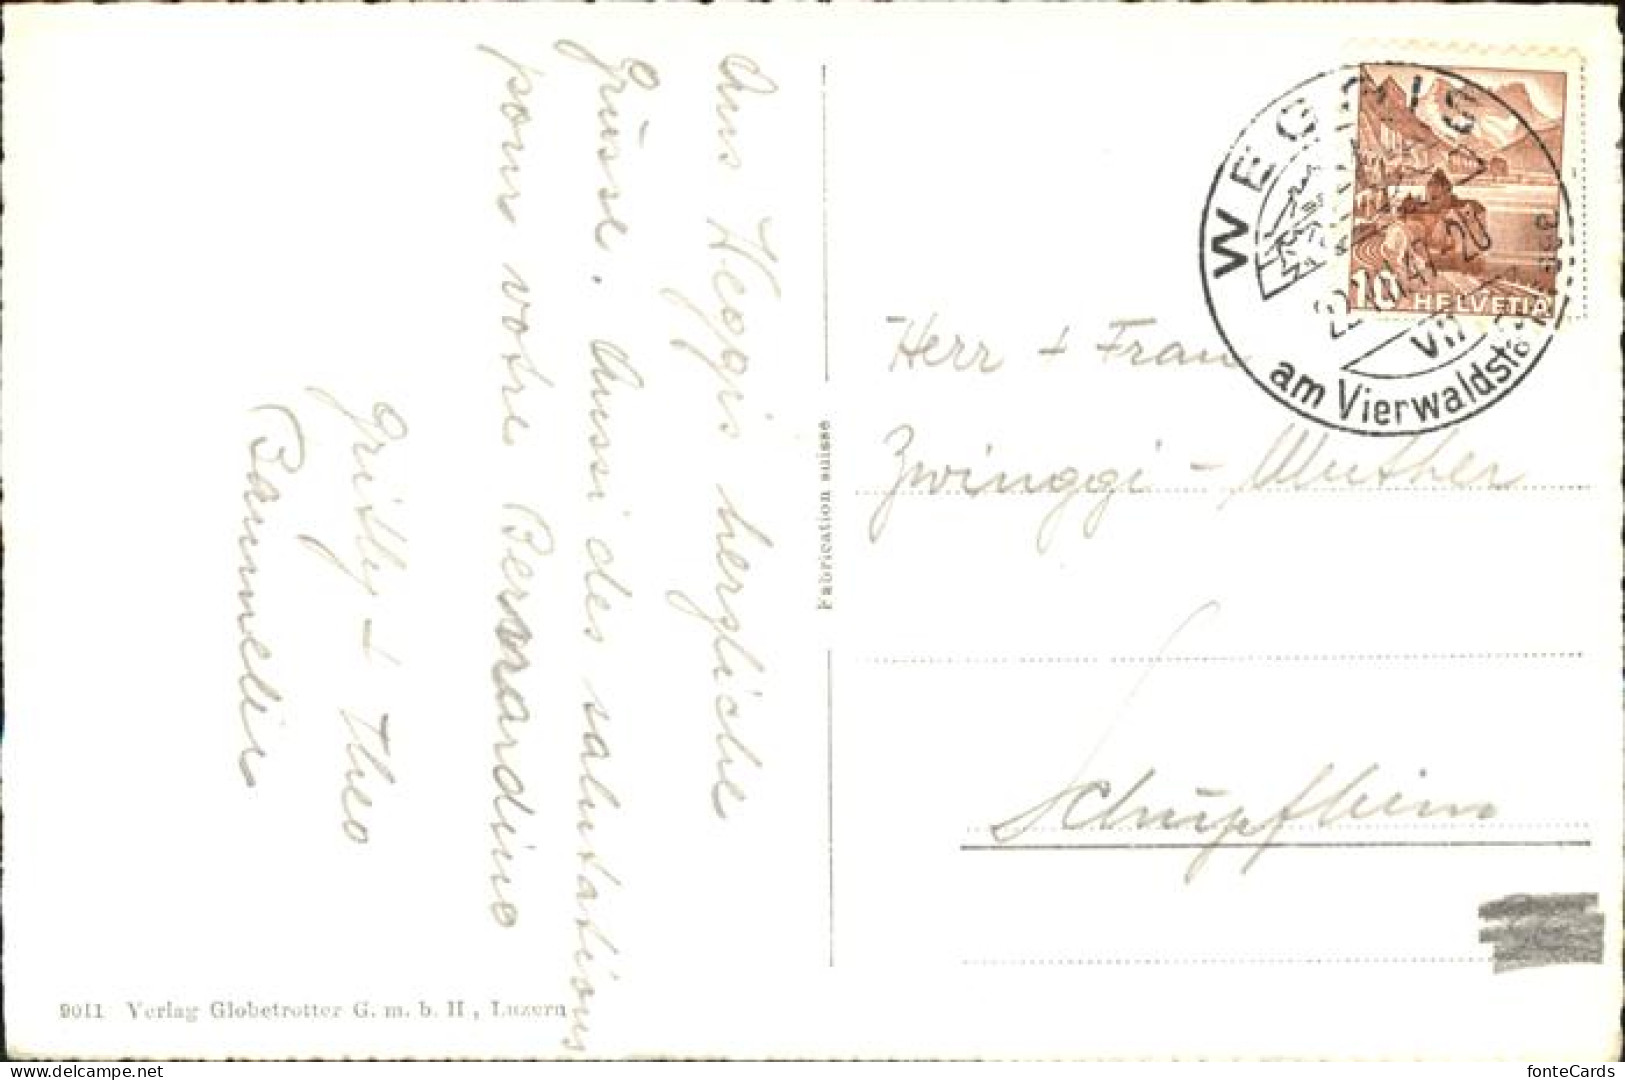 Aus Weggis herzliche
Grüsse. Aussi des salutations
pour votre Bernardino
Gritly + Theo
Baumeler
9011 Verlag Globetrotter G. m. b. H, Luzern
Fabrication suisse
WEGGIS
am Vierwaldst
10 HELVETIA
Herr + Frau
Zwinggi - Muther
Schüpfheim
fonteCards
delcampe.net